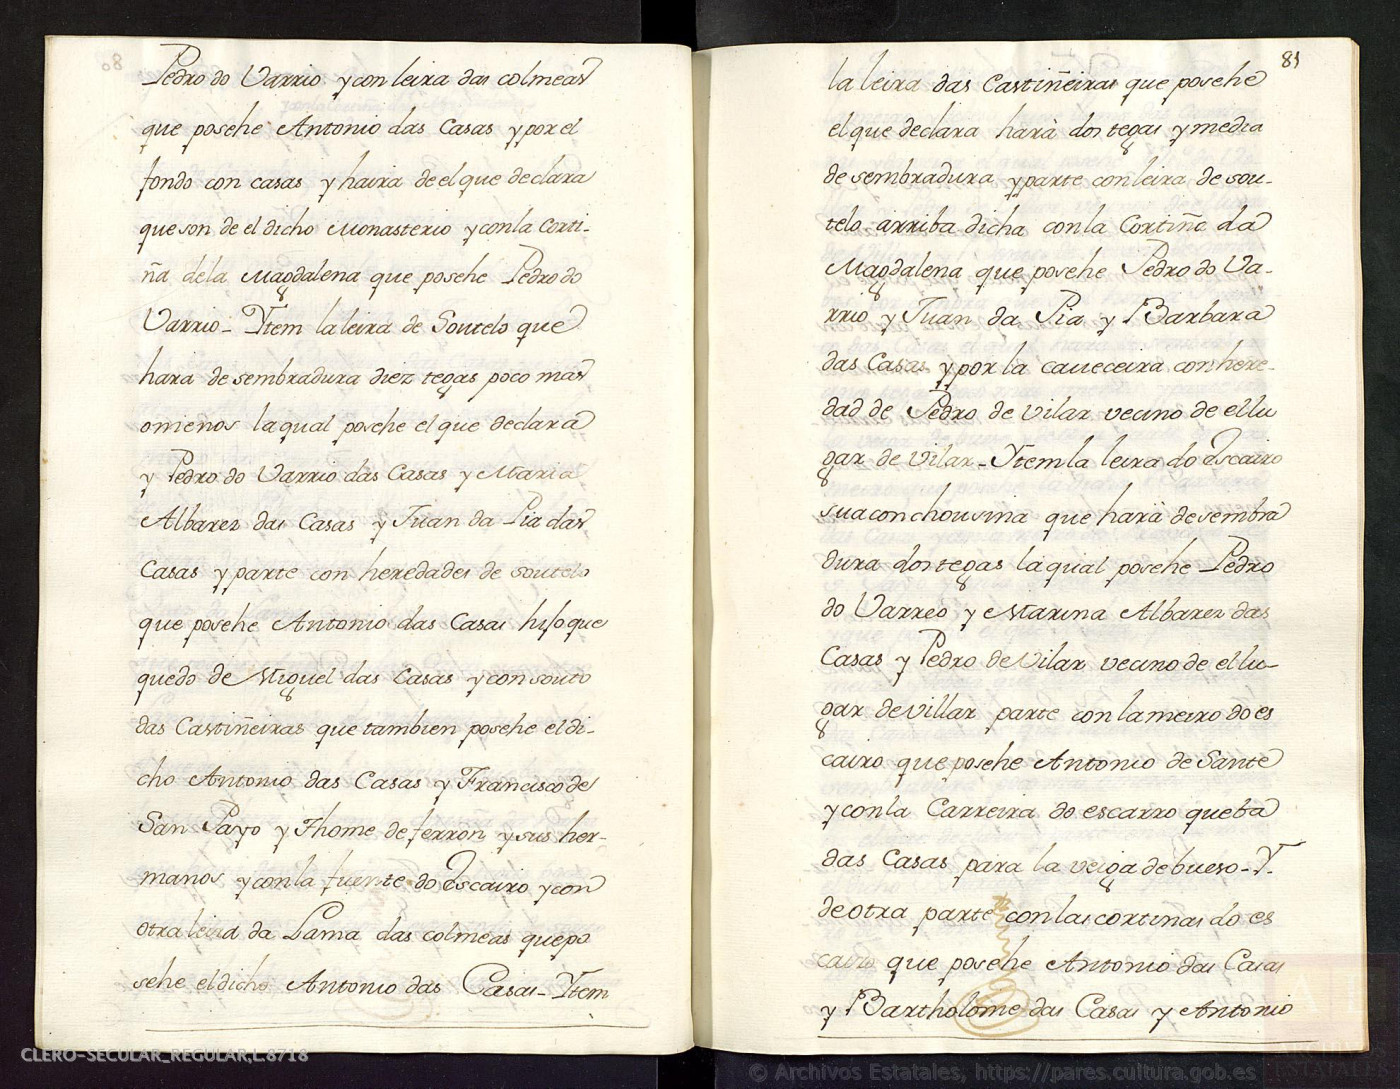 Pedro do Varrio y con leira das colmeas
que posehe Antonio das Casas y por el
fondo con casas y haira de el que declara
que son de el dicho Monasterio y con la Corti-
ña de la Magdalena que posehe Pedro do
Varrio - Ytem la leira de Soutelo que
hara de sembradura diez tegas poco mas
o meños la qual posehe el que declara
y Pedro do Varrio das Casas y Maria
Albarez das Casas y Juan da Pia das
Casas y parte con heredades de soutelo
que posehe Antonio das Casas hijo que
quedo de Miguel das Casas y con souto
das Castiñeiras que tambien posehe el di-
cho Antonio das Casas y Francisco de
San Payo y Thome de ferron y sus her-
manos y con la fuente do Escairo y con
otra leira da Lama das colmeas que po
sehe el dicho Antonio das Casas - Ytem
81
la leira das Castiñeiras que posehe
el que declara harà dos tegas y media
de sembradura y parte con leira de sou-
telo arriba dicha con la Cortiña da
Magdalena que posehe Pedro do Va-
rrio y Juan da Pia y Barbara
das Casas y por la caveceira con here-
dad de Pedro de Vilar vecino de el lu
gar de Vilar - Ytem la leira do Escairo
sua conchousina que harà de sembra
dura dos tegas la qual posehe Pedro
do Varreo y Marina Albarez das
Casas y Pedro de Vilar vecino de el lu-
gar de Villar parte con lameiro do es
cairo que posehe Antonio de Sante
y con la Carreira do escarro que ba
das Casas para la veiga de bueso - Y.
de otra parte con las cortinas do es
cairo que posehe Antonio das Casas
y Bartholome das Casas y Antonio
CLERO-SECULAR_REGULAR,L.8718
© Archivos Estatales, https://pares.cultura.gob.es